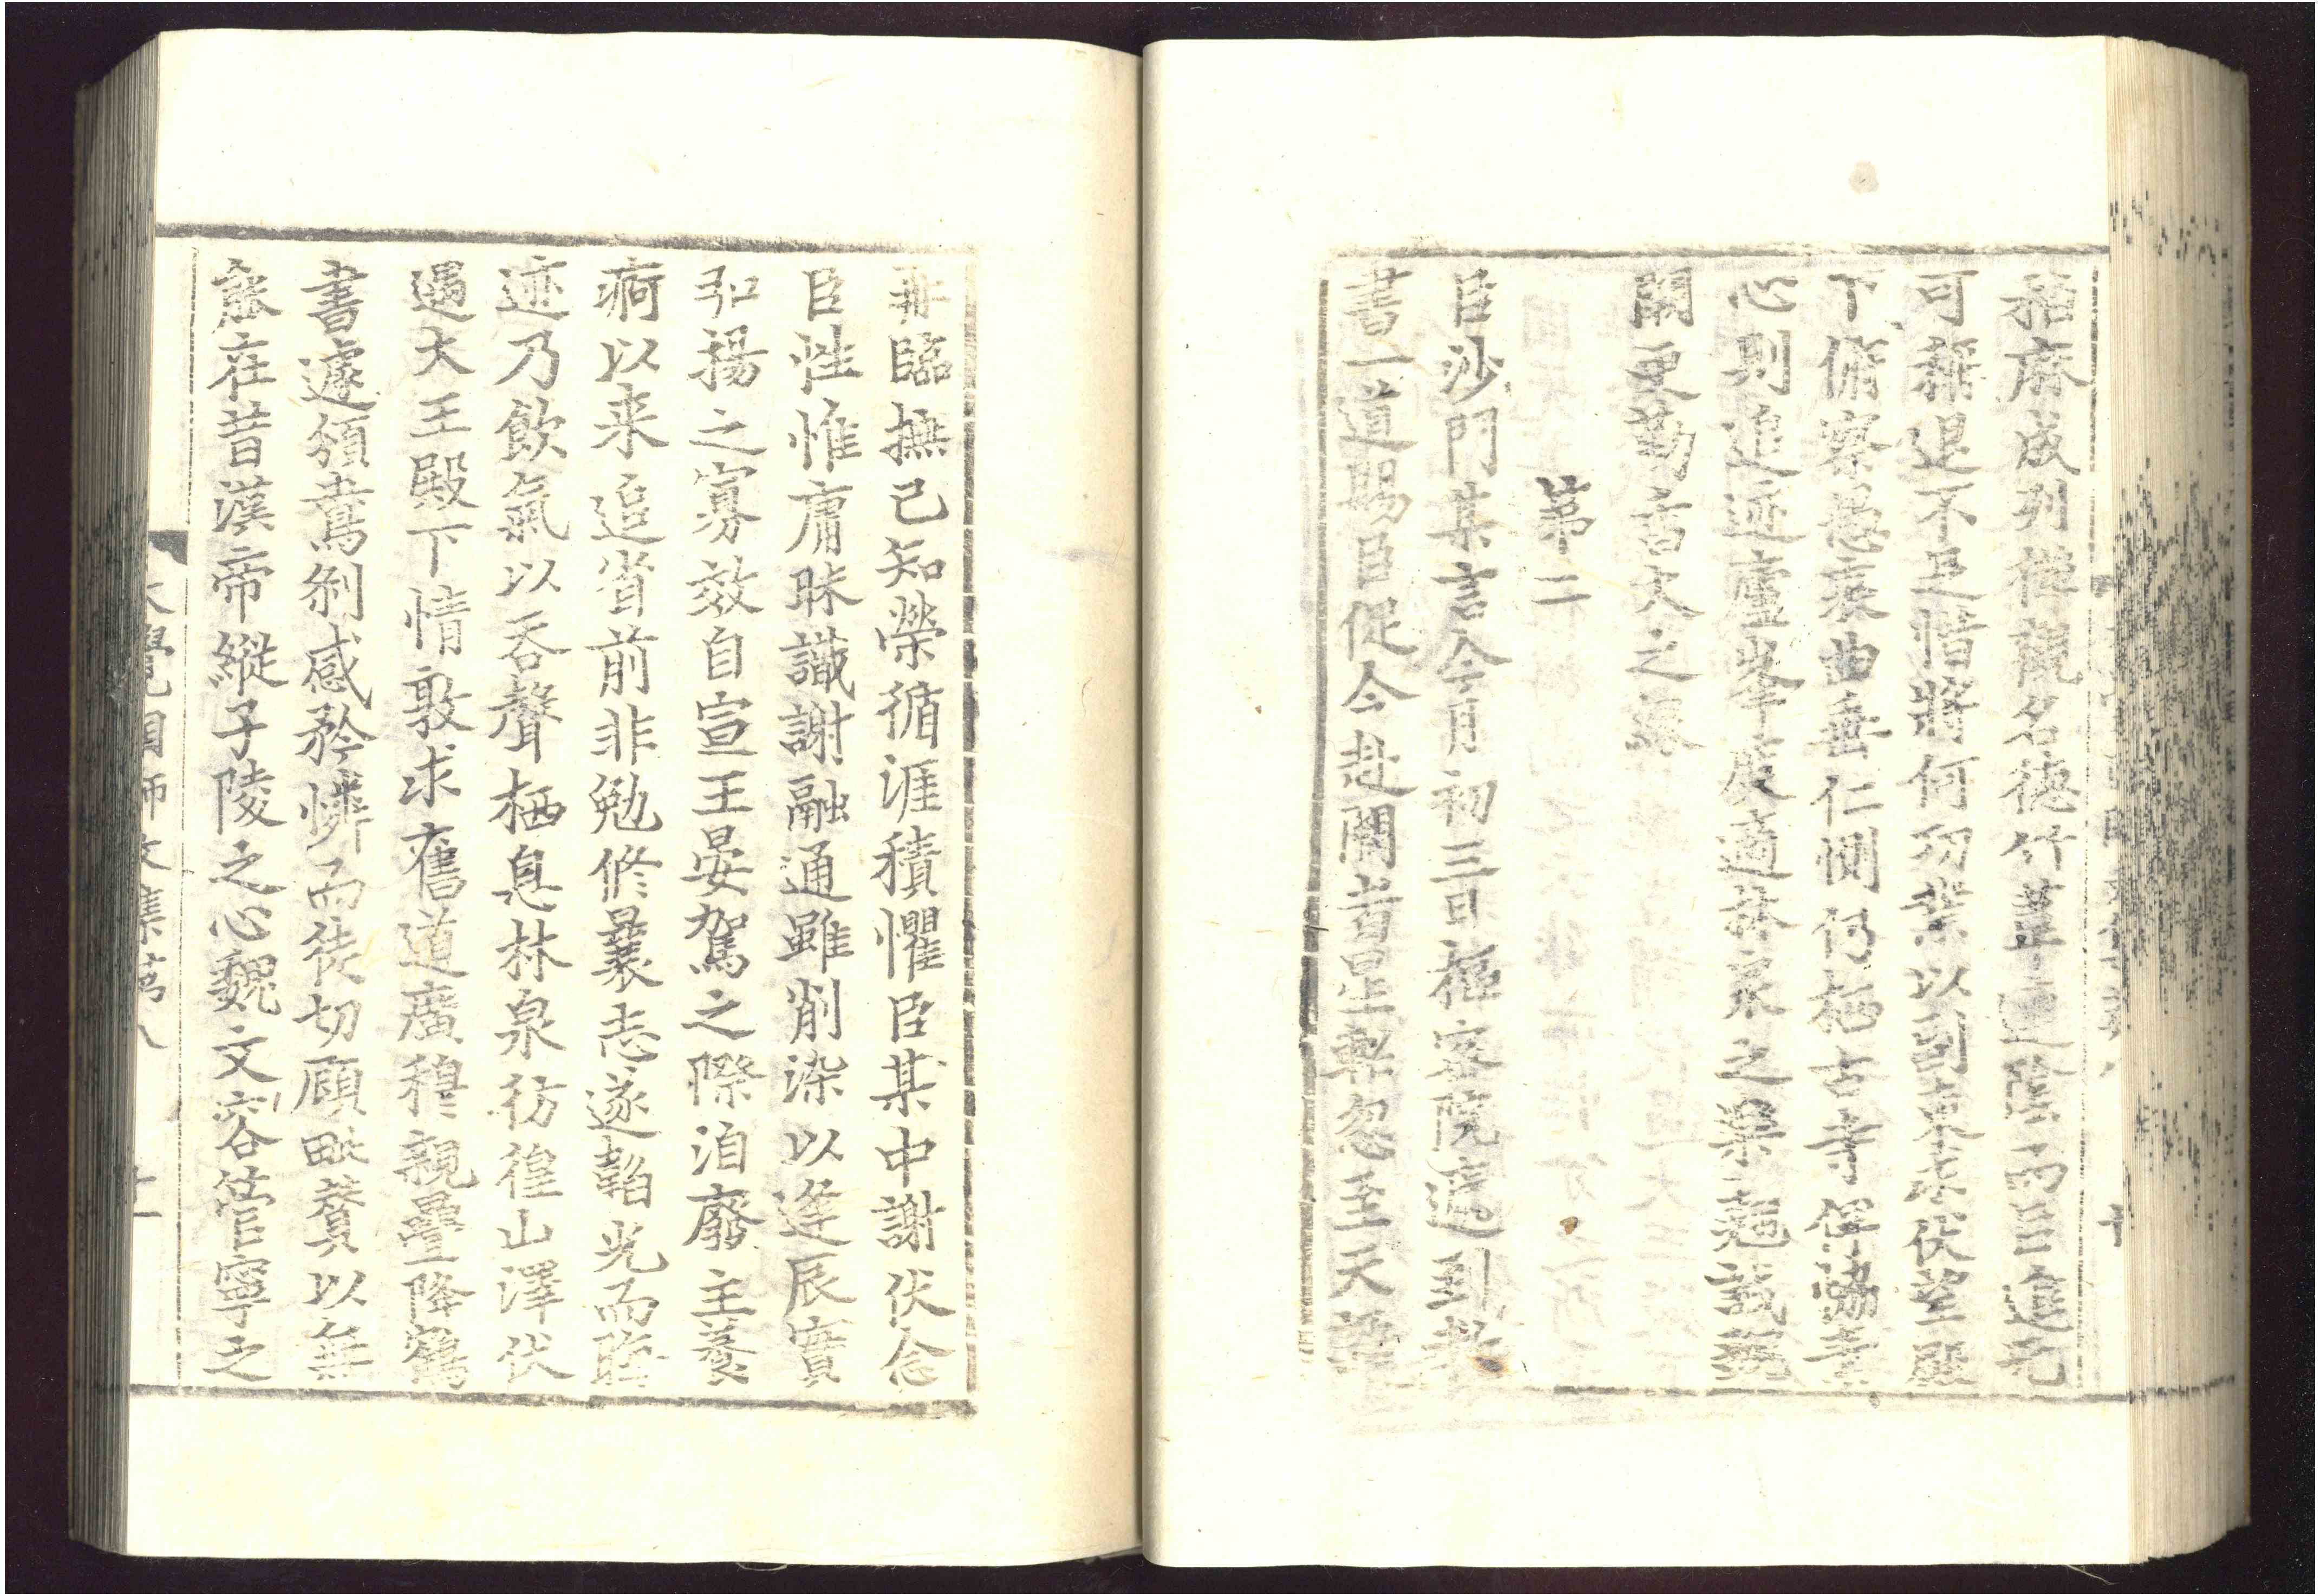 稻麻成列禪講名德竹葦連陰而臣進無
可稱退不足惜將何功業以副東求伏望殿
下俯察愚衷曲垂仁惻仍栖古寺俾
心則追迹廬峯度適林泉之樂翹誠
闕更勤香火之緣
第二
臣沙門某言今月初三日樞密院遞到教
書一道賜臣促令赴闕者星軺忽至天
非臨撫己知榮循涯積懼臣某中謝伏念
臣性惟庸昧識謝融通雖削染以逢辰實
弘揚之寡效自宣王晏駕之際洎廢主養
痾以来追省前非勉修曩志遂韜光而晦
迹乃飲氣以吞聲栖息林泉彷徨山澤伏
遇大王殿下情敦求舊道廣穆親疊降鶴
書遽頒鸞劄感矜憐而徒切顧毗贊以無
能在昔漢帝縱子陵之心魏文容管寧之
大覺國師文集第八
十一